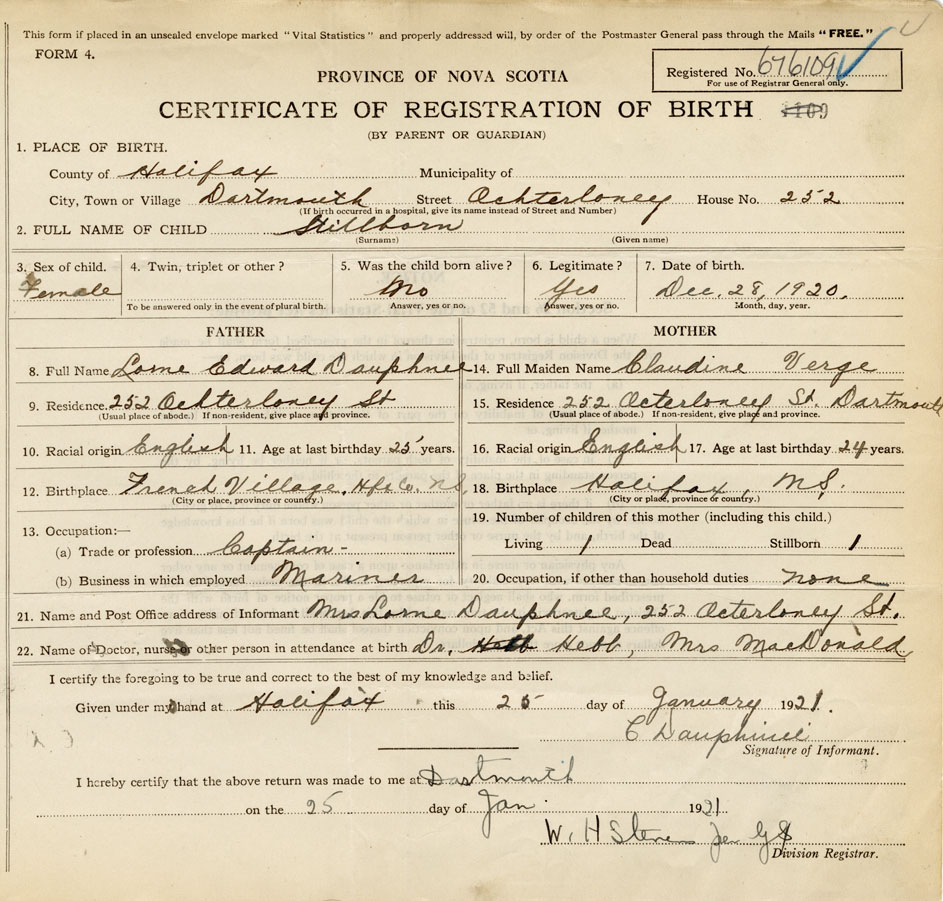 This form if placed in an unsealed envelope marked "Vital Statistics" and properly addressed will, by order of the Postmaster General pass through the Mails "FREE."
FORM 4.
Registered No. 676109
For use of Registrar General only.
PROVINCE OF NOVA SCOTIA
CERTIFICATE OF REGISTRATION OF BIRTH
(BY PARENT OR GUARDIAN)
1. PLACE OF BIRTH.
County of Halifax Municipality of
City, Town or Village Dartmouth Street Ochterloney House No. 252
(If birth occurred in a hospital, give its name instead of Street and Number)
2. FULL NAME OF CHILD Stillborn
(Surname) (Given name)
3. Sex of child. 4. Twin, triplet or other? 5. Was the child born alive? 6. Legitimate? 7. Date of birth.
Female No Yes Dec. 28, 1920.
To be answered only in the event of plural birth. Answer, yes or no. Answer, yes or no. Month, day, year.
FATHER MOTHER
8. Full Name Lorne Edward Dauphnee 14. Full Maiden Name Claudine Verge
9. Residence. 252 Ochterloney St 15. Residence 252 Octerloney St. Dartmouth
(Usual place of abode.) If non-resident, give place and province. (Usual place of abode.) If non-resident, give place and province.
10. Racial origin English 11. Age at last birthday 25 years. 16. Racial origin English 17. Age at last birthday 24 years.
12. Birthplace French Village, Hfx Co. N.S. 18. Birthplace Halifax, N.S.
(City or place, province or country.) (City or place, province or country.)
13. Occupation:— 19. Number of children of this mother (including this child.)
(a) Trade or profession Captain - Living 1 Dead Stillborn 1
(b) Business in which employed Mariner 20. Occupation, if other than household duties none
21. Name and Post Office address of Informant Mrs Lorne Dauphnee, 252 Octerloney St.
22. Name of Doctor, nurse or other person in attendance at birth Dr. Hebb Hebb, Mrs MacDonald
I certify the foregoing to be true and correct to the best of my knowledge and belief.
Given under my hand at Halifax this 25 day of January 1921.
C Dauphinee
Signature of Informant.
I hereby certify that the above return was made to me at Dartmouth
on the 25 day of Jan. 1921
W. H Stevens
Division Registrar.